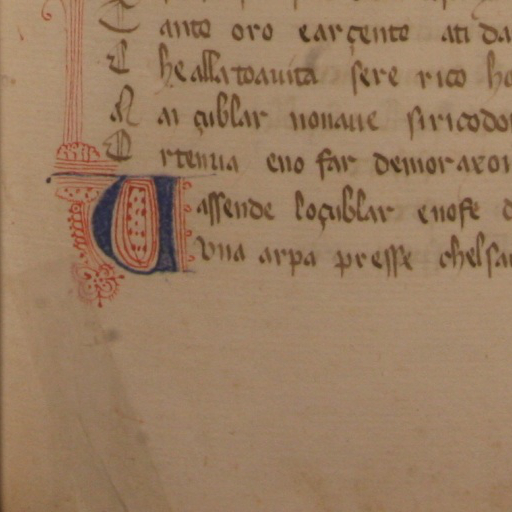 T anto oro e arçento ati da
C he alla toa uita sere rico ho
M ai çublar non aue si rico do
E rtenua e no far demoraxon
V assende lo çublar e no fe d
V na arpa presse chel sa